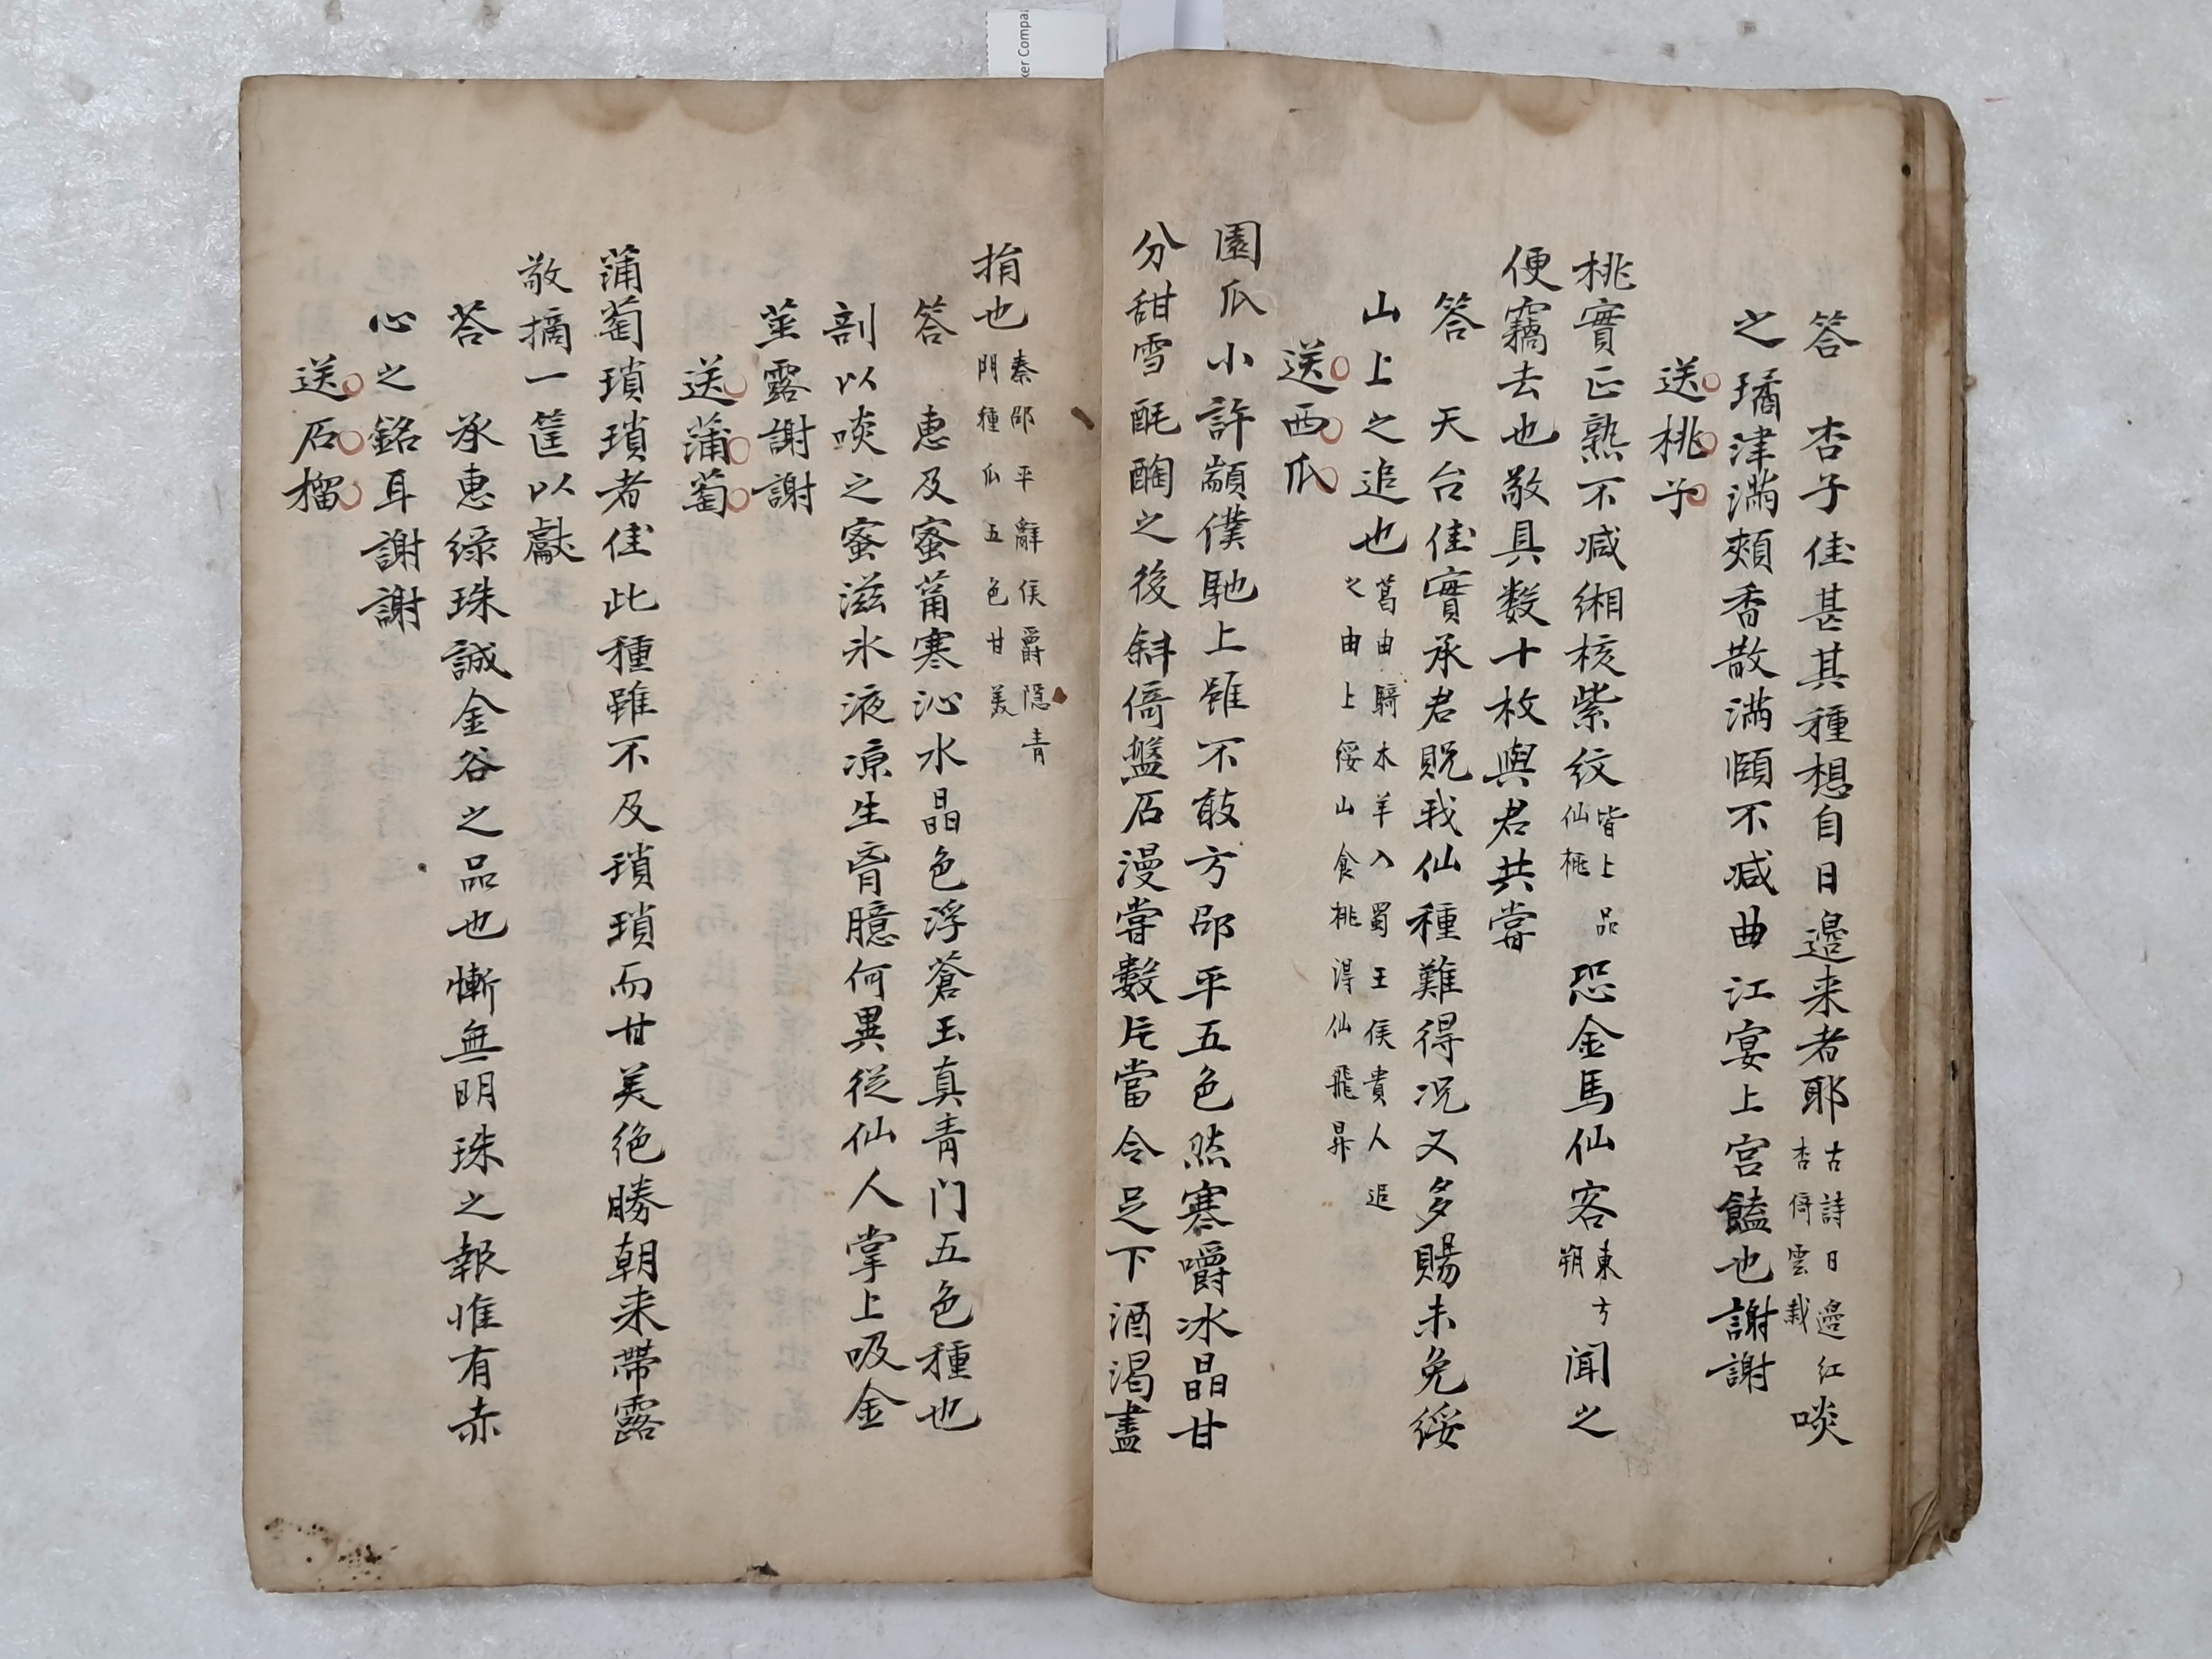 答　杏子佳甚其種想自日邉来者耶古詩日邉紅杏倚雲栽啖
之璚津滿頰香散滿頤不减曲江宴上宮饁也謝謝
送桃子
桃實正熟不减缃核紫紋皆上品仙桃恐金馬仙客東方朔聞之
便竊去也敬具数十枚與君共嘗
答　天台佳實承君貺我仙種難得况又多賜未免綏
山上之追也葛由騎木羊入蜀王侯貴人追之由上綏山食桃淂仙飛昇
送西瓜
園瓜小許顓僕馳上雖不敢方邵平五色然寒嚼冰晶甘
分甜雪酕醄之後斜倚盤石漫嘗數片當令足下酒渴盡
捐也秦邵平辭侯爵隠青門種瓜五色甘美
答　惠及蜜莆寒沁水晶色浮蒼玉真青门五色種也
剖以啖之蜜滋氷液凉生胷臆何異從仙人掌上吸金
莖露謝謝
送蒲萄
蒲萄瑣瑣者佳此種雖不及瑣瑣而甘美绝勝朝来帶露
敬摘一筐以獻
荅　承惠绿珠誠金谷之品也慚無明珠之報惟有赤
心之銘耳謝謝
送石榴
ker Compa